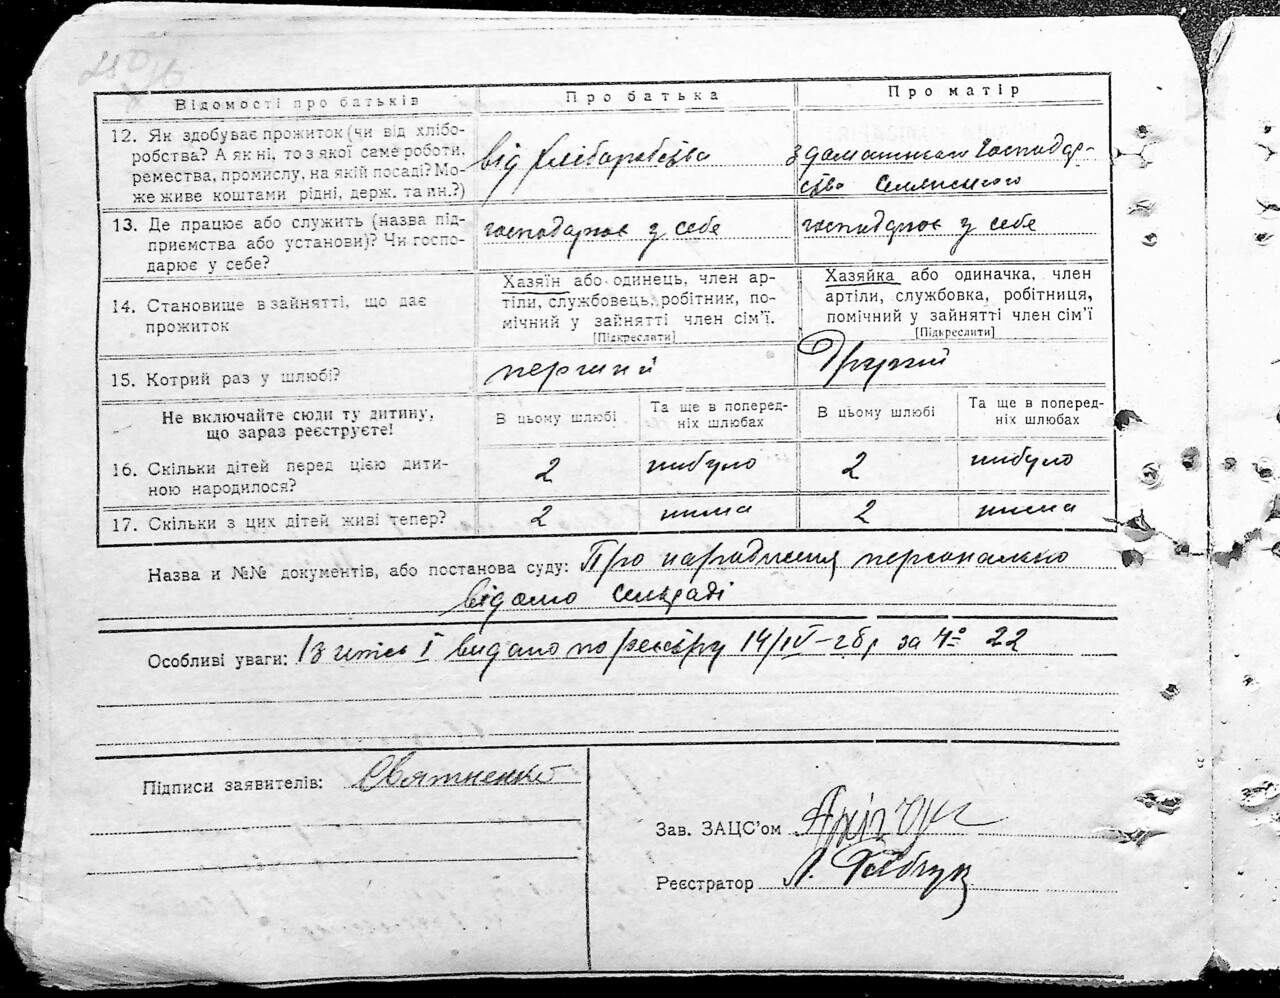 Відомості про батьків
Про батька
Про матір
12. Як здобуває прожиток (чи від хлібо-
робства? А як ні, то з якої саме роботи,
ремества, промислу, на якій посаді? Мо-
же живе коштами рідні, держ. та ин.?)
від хліборобства
з домашнього господар-
ства селянського
13. Де працює або служить (назва під-
приємства або установи)? Чи госпо-
дарює у себе?
господарює у себе
господарює у себе
14. Становище в зайнятті, що дає
прожиток
Хазяїн або одинець, член ар-
тіли, службовець, робітник, по-
мічний у зайнятті член сім'ї.
[Підкреслити]
Хазяйка або одиначка, член
артіли, службовка, робітниця,
помічний у зайнятті член сім'ї
[Підкреслити]
15. Котрий раз у шлюбі?
перший
Другий
Не включайте сюди ту дитину,
що зараз реєструєте!
В цьому шлюбі
Та ще в поперед-
ніх шлюбах
В цьому шлюбі
Та ще в поперед-
ніх шлюбах
16. Скільки дітей перед цією дити-
ною народилося?
2
нибуло
2
нибуло
17. Скільки з цих дітей живі тепер?
2
нима
2
нима
Назва и №№ документів, або постанова суду: Про народження персонально
відомо сельраді
Особливі уваги: I видано по реєстру 14/IV-26р за № 22
Підписи заявителів: Святненко
Зав. ЗАЦС'ом
Реєстратор Л.